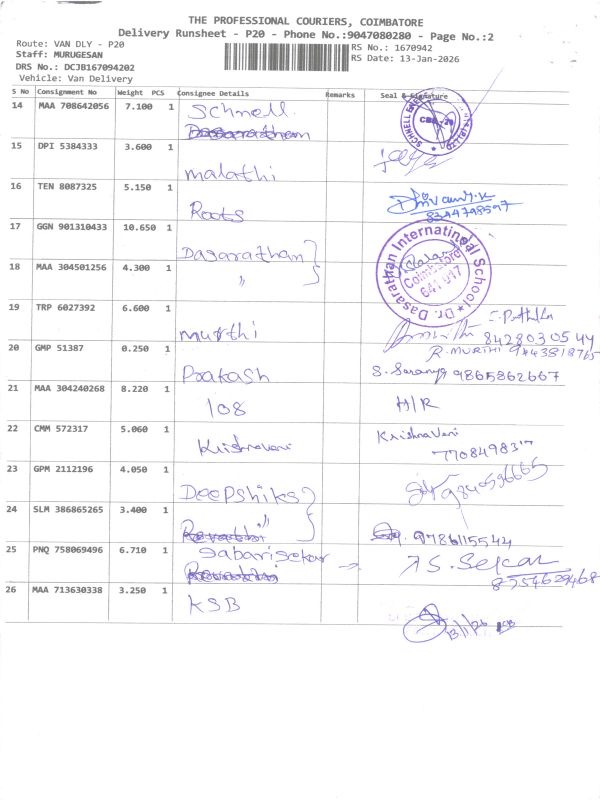 THE PROFESSIONAL COURIERS, COIMBATORE
Delivery Runsheet - P20 - Phone No.:9047080280 - Page No.:2
Route: VAN DLY - P20
RS No.: 1670942
Staff: MURUGESAN
RS Date: 13-Jan-2026
DRS No.: DCJB167094202
Vehicle: Van Delivery
S No Consignment No Weight PCS Consignee Details Remarks Seal & Signature
14 MAA 708642056 7.100 1 Schnell
Dasaratham
15 DPI 5384333 3.600 1 malathi
16 TEN 8087325 5.150 1 Roots
8344798597
17 GGN 901310433 10.650 1 Dasaratham
Dr. Dasarathan Internatinoal School
Coimbatore
641 017
18 MAA 304501256 4.300 1 "
19 TRP 6027392 6.600 1 murthi
8428030544
R. MURTHI 9443818765
20 GMP 51387 0.250 1 Prakash S. Saranya 9865862667
21 MAA 304240268 8.220 1 108 H/R
22 CMM 572317 5.060 1 Krishnaveni KrishnaVeni
23 GPM 2112196 4.050 1 Deepshiks
24 SLM 386865265 3.400 1 "
9786115544
25 PNQ 758069496 6.710 1 Sabarisekar S. Sekar
8754629468
26 MAA 713630338 3.250 1 KSB
13/1/26